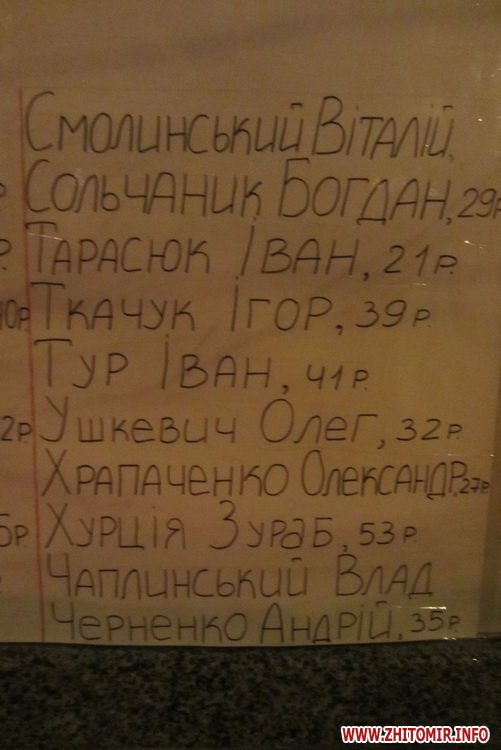 Смолинський Віталій,
Сольчаник Богдан, 29р
Р. Тарасюк Іван, 21р.
Ткачук Ігор, 39р.
Тур Іван, 41р.
2р. Ушкевич Олег, 32р.
Храпаченко Олександр, 27р.
5р. Хурція Зураб, 53р.
Чаплинський Влад
Черненко Андрій, 35р.
WWW.ZHITOMIR.INFO